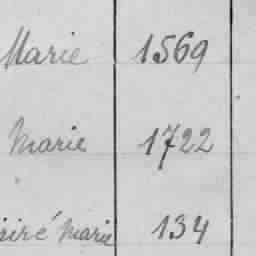 Marie 1569
Marie 1722
Marie 134